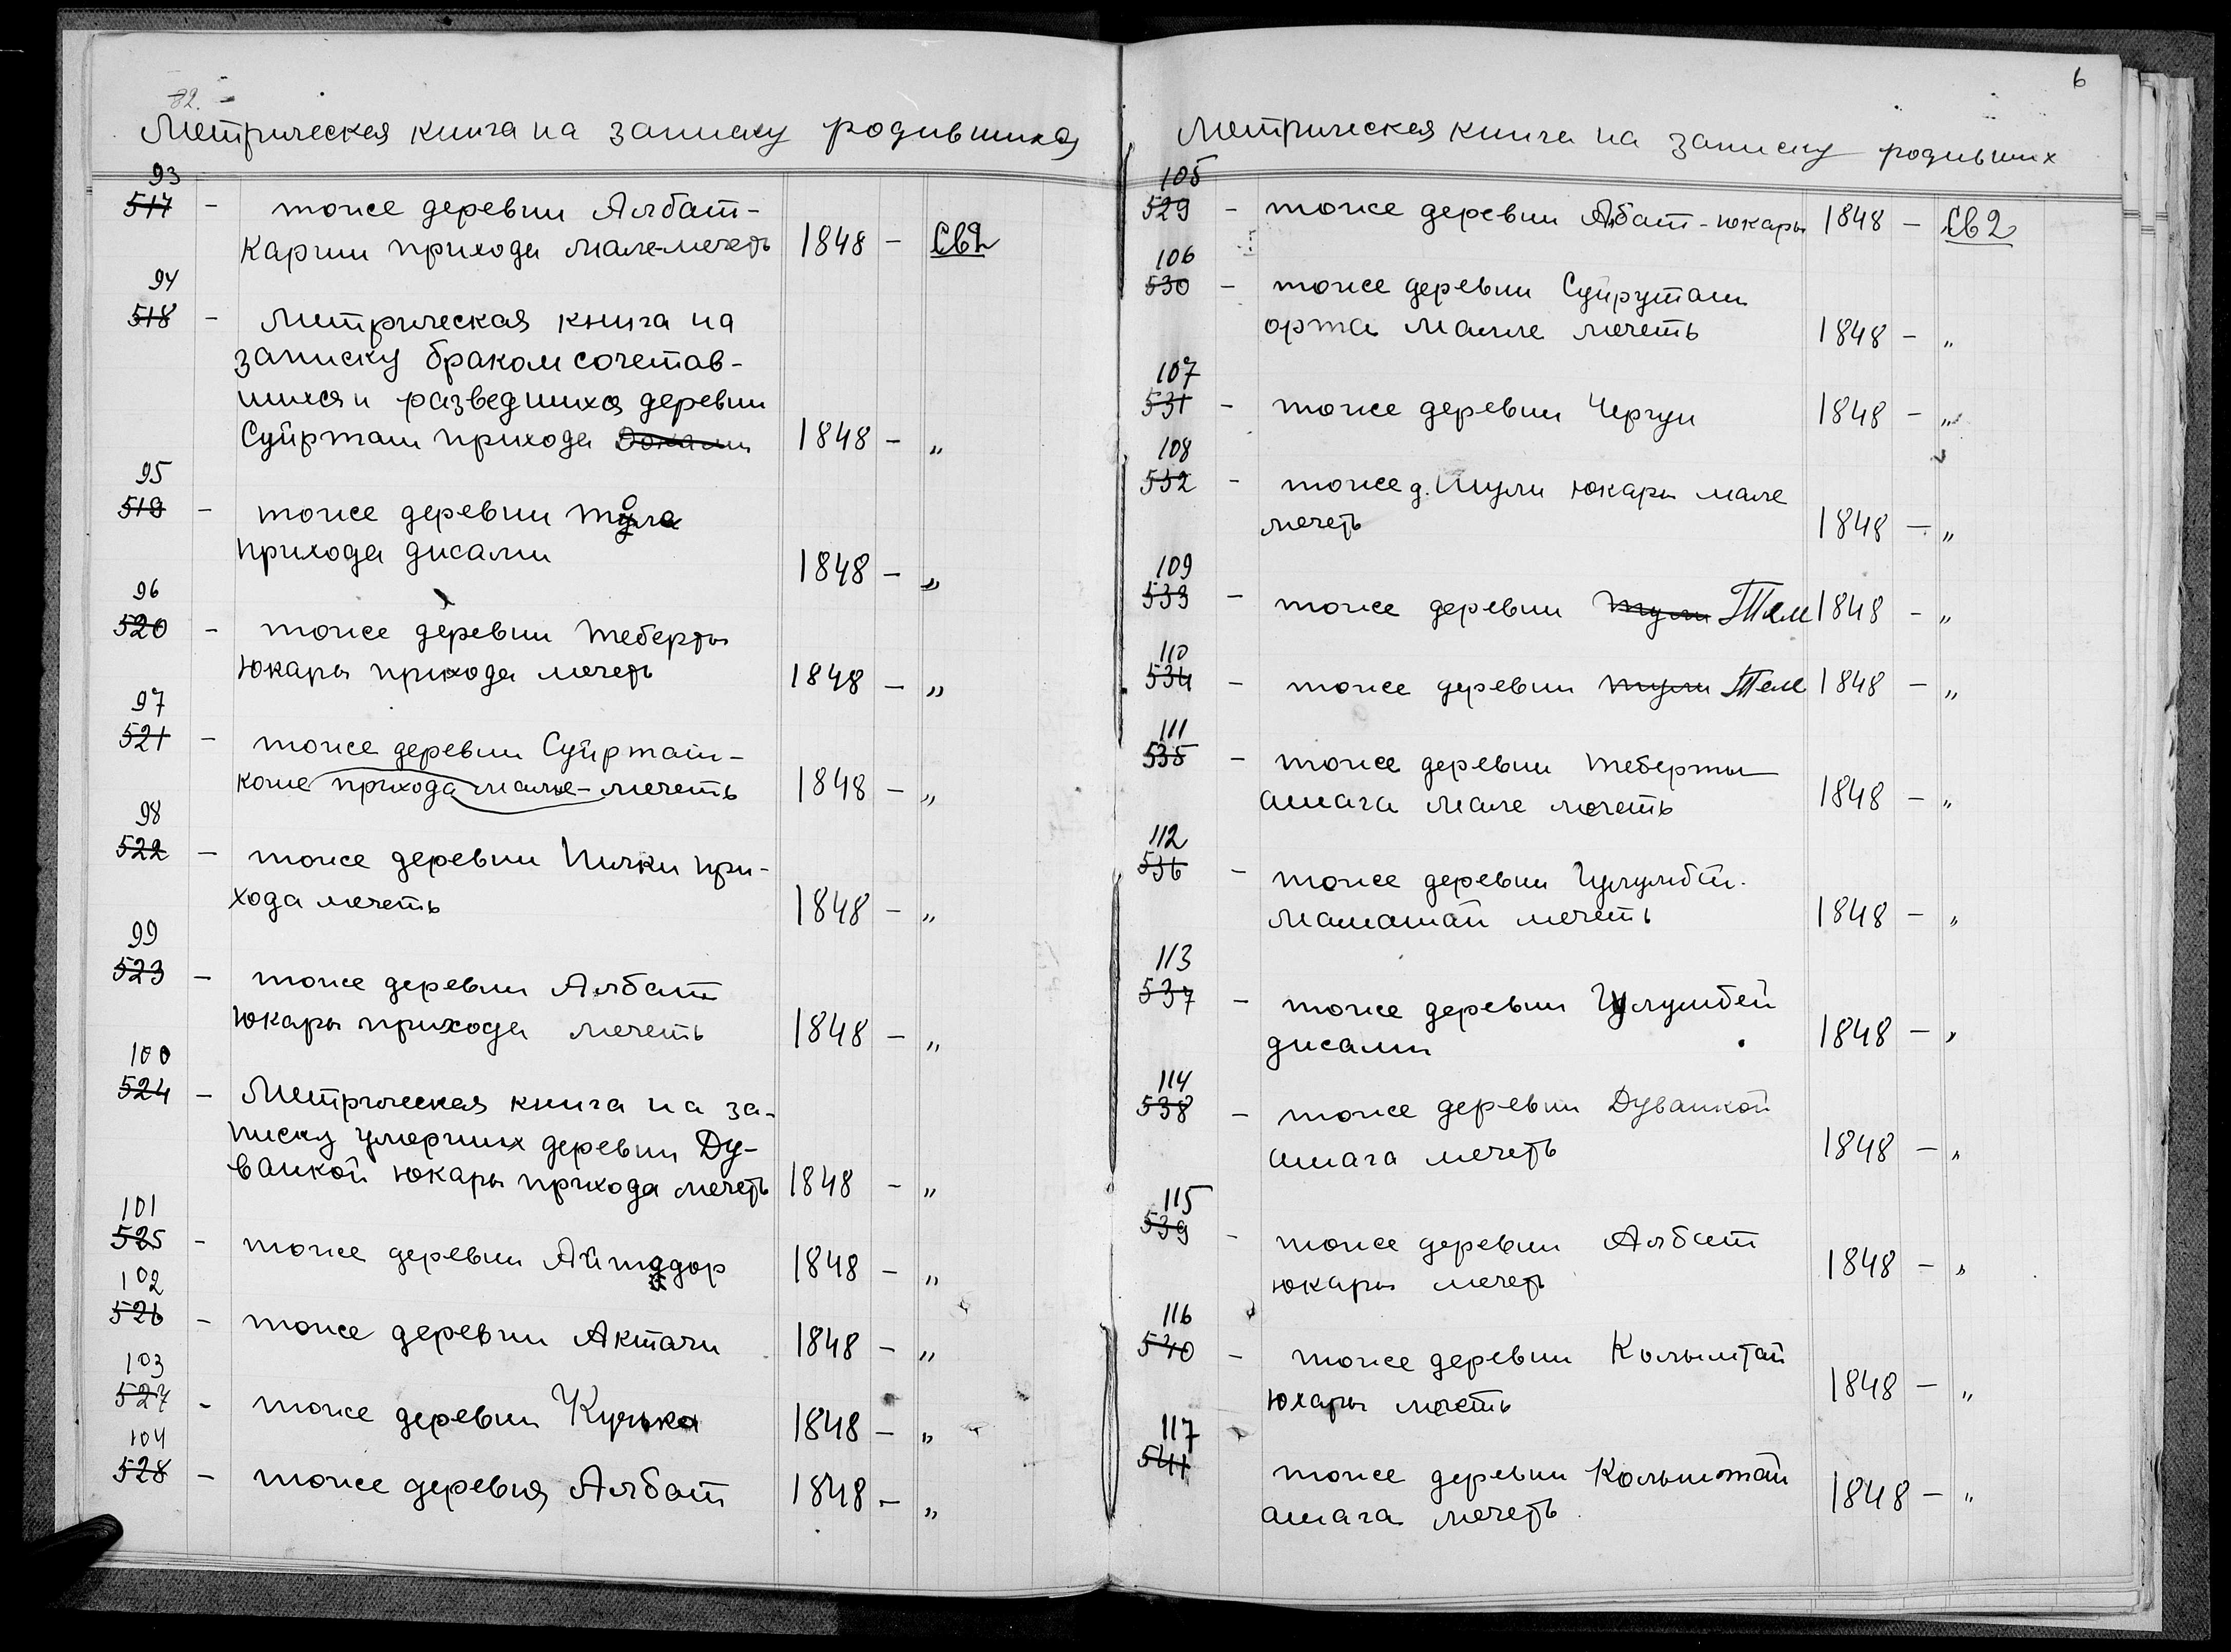 82.
Метрическая книга на записку родившихся
93
517 - тоже деревни Албат-
Карши прихода Мале-мечеть 1848 - Св2
94
518 - Метрическая книга на
записку браком сочетав-
шихся и разведшихся деревни
Суйрташ прихода 1848 - "
95
519 - тоже деревни
прихода дисами 1848 - "
96
520 - тоже деревни теберты
юкары прихода мечеть 1848 - "
97
521 - тоже деревни Суйрташ-
коше прихода малье-мечеть 1848 - "
98
522 - тоже деревни Пички при-
хода мечеть 1848 - "
99
523 - тоже деревни Албат
юкары прихода мечеть 1848 - "
100
524 - Метрическая книга на за-
писку умерших деревни Ду-
ванкой юкары прихода мечеть 1848 - "
101
525 - тоже деревни 1848 - "
102
526 - тоже деревни Актачи 1848 - "
103
527 - тоже деревни Кучька 1848 - "
104
528 - тоже деревня Албат 1848 - "
6
Метрическая книга на записку родивших
105
529 - тоже деревни Албат-юкары 1848 - Св2
106
530 - тоже деревни Суйруташ
орта малле мечеть 1848 - "
107
531 - тоже деревни Чергуи 1848 - "
108
532 - тоже д. Шули юкары мале
мечеть 1848 - "
109
533 - тоже деревни тули 1848 - "
110
534 - тоже деревни тули 1848 - "
111
535 - тоже деревни теберты
ашага мале мечеть 1848 - "
112
536 - тоже деревни
мечеть 1848 - "
113
537 - тоже деревни
дисами 1848 - "
114
538 - тоже деревни Дуванкой
ашага мечеть 1848 - "
115
539 - тоже деревни Албат
юкары мечеть 1848 - "
116
540 - тоже деревни Колымтай
юхары мечеть 1848 - "
117
541 тоже деревни Колымтай
ашага мечеть 1848 - "